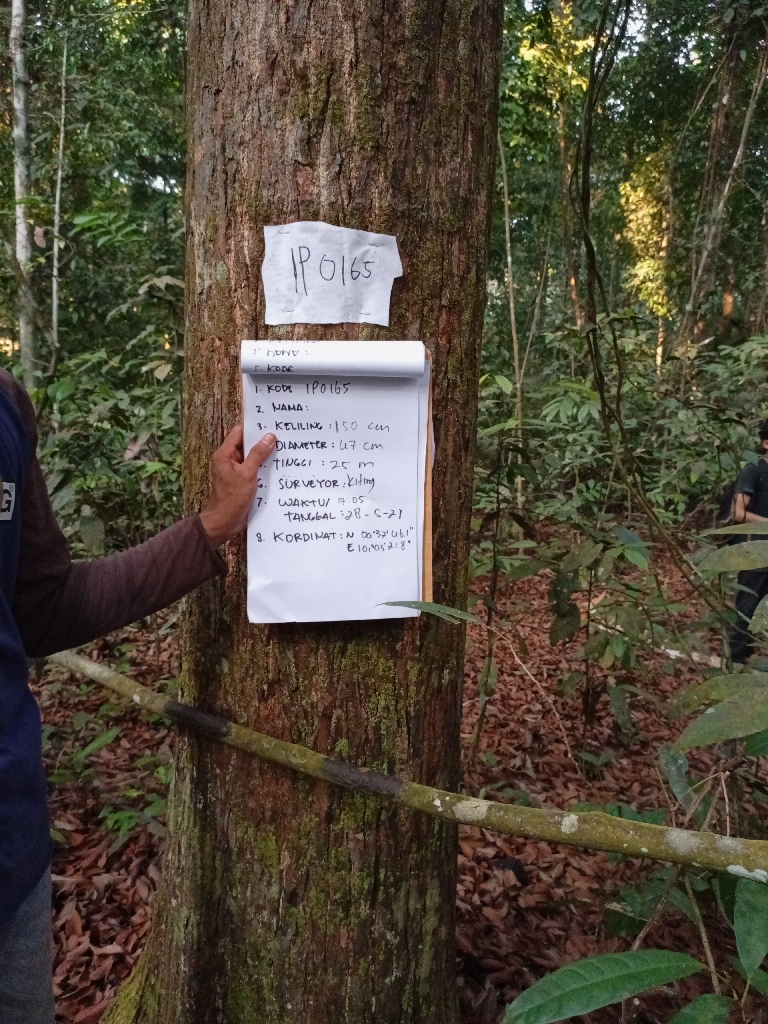 IP0165
KODE
1. KODE IP0165
2. NAMA:
3. KELILING : 150 cm
DIAMETER : 47 cm
TINGGI : 25 m
6. SURVEYOR :
7. WAKTU / 7.05
TANGGAL : 28-5-21
8. KORDINAT : N 00°32'46.1"
E 101°05'21.8"
G